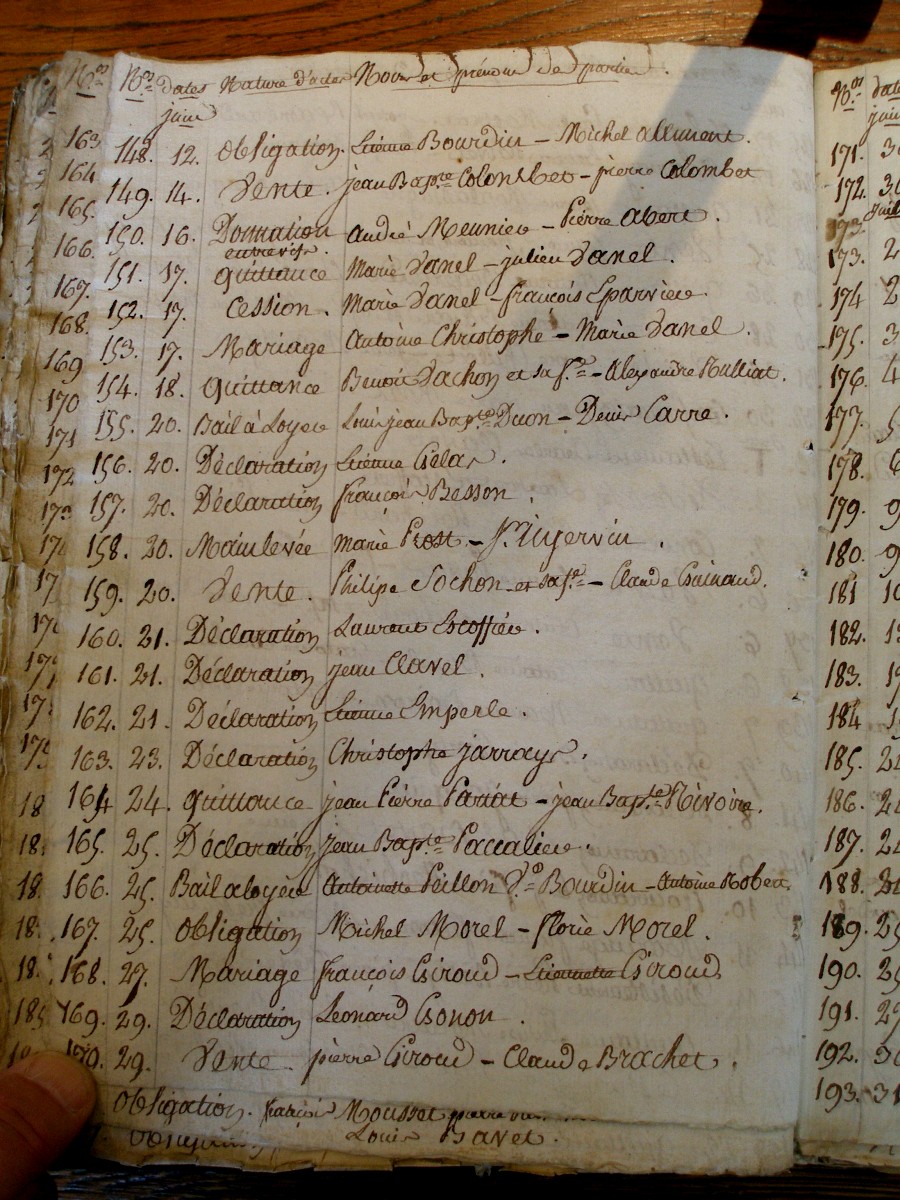 N.os N.os dates Nature d'actes Noms et prénoms de parties.
juin
163 148. 12. Obligation. Etienne Bourdin - Michel alliment.
164 149. 14. Vente. jean Bapte Colombet - pierre Colombet
165. 150. 16. Donnation André Meunier - Pierre abert.
entrevifs
166. 151. 17. quittance Marie Danel - julien Danel.
167. 152. 17. Cession. Marie Danel - françois Eparviere.
168. 153. 17. Mariage Antoine Christophe - Marie Danel.
169 154. 18. quittance Benoit Dachon et sa f.e - Alexandre Rulliat.
170 155. 20. Bail à Loyer Louis jean Bapte Duon - Denis Carre.
171 156. 20. Déclaration Etienne Gelas.
172 157. 20. Déclaration françois Besson.
173 158. 20. Mainlevée marie Prost -
17 159. 20. Vente. Philipe Sochon et sa f.e - Claude Guinaud.
17 160. 21. Déclaration Laurent Escoffier.
17 161. 21. Déclaration jean Clavel.
17 162. 21. Déclaration Etienne Emperle.
17 163. 23. Déclaration Christophe jarrays.
18 164 24. quittance jean Pierre Pariat - jean Bapte Nivoire.
18 165. 25. Déclaration jean Bapte Paccalier.
18 166. 25. Bail aloyer Antoinette Peillon V.e Bourdin - Antoine Robert.
18 167. 25. Obligation Michel Morel - florie Morel.
18 168. 27. Mariage françois Giroud - Etiennette Giroud
185 169. 29. Déclaration Leonard Gonon.
170. 29. Vente. pierre Giroud - Claude Brachet.
Obligation. françois Mousset pierre
Louis Bavet.
N.os dates
juin
171. 30
172. 30
juil
173. 2
174 2
175. 3
176. 4
177. 5
178. 6
179. 9
180. 9
181 10
182. 1
183. 1
184 1
185. 2
186. 2
187. 2
188. 2
189. 25
190. 25
191. 27
192. 30
193. 31